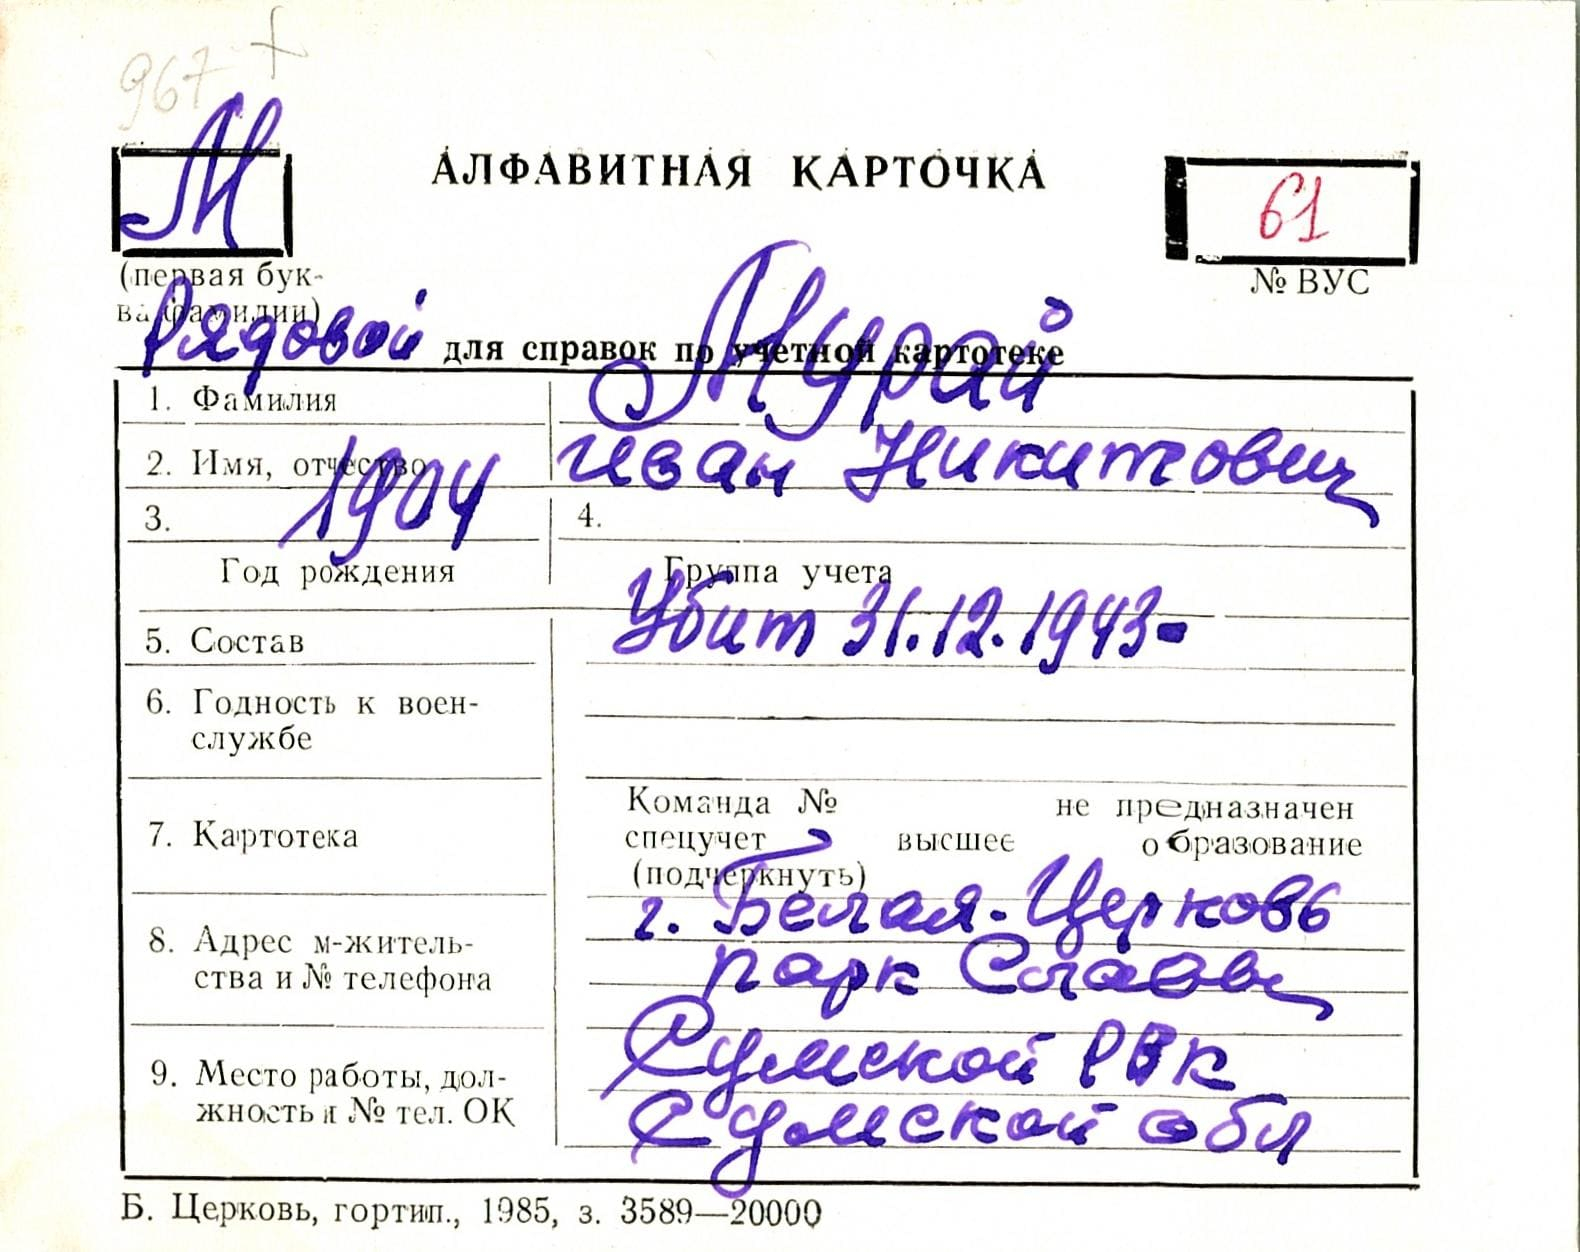 967 +
М
АЛФАВИТНАЯ КАРТОЧКА
61
(первая бук-
ва фамилии)
№ ВУС
Рядовой для справок по учетной картотеке
1. Фамилия Мурай
2. Имя, отчество Иван Никитович
3. 1904 4.
Год рождения Группа учета
5. Состав Убит 31.12.1943-
6. Годность к воен-
службе
Команда № не предназначен
7. Картотека спецучет высшее образование
(подчеркнуть)
г. Белая-Церковь
8. Адрес м-житель-
ства и № телефона парк Славы
Сумской РВК
9. Место работы, дол-
жность и № тел. ОК Сумской обл
Б. Церковь, гортип., 1985, з. 3589—20000